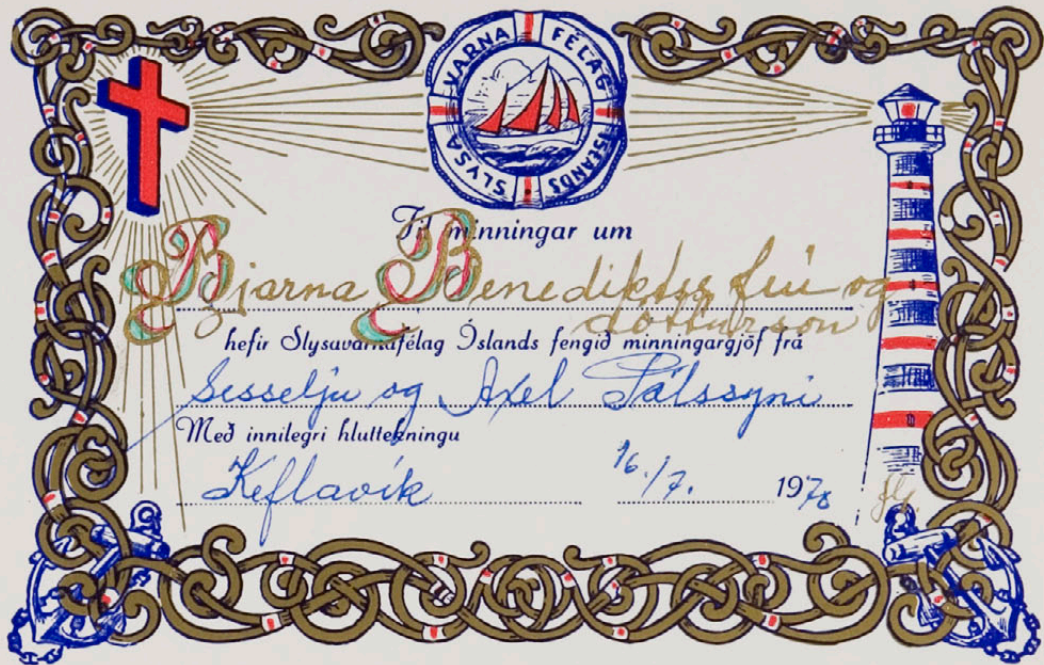 SLYSAVARNAFÉLAG ÍSLANDS
Til minningar um
Bjarna Benediktss frú og
dótturson
hefir Slysavarnafélag Íslands fengið minningargjöf frá
Sesselju og Axel Pálssyni
Með innilegri hluttekningu
Keflavík 16./7. 1970